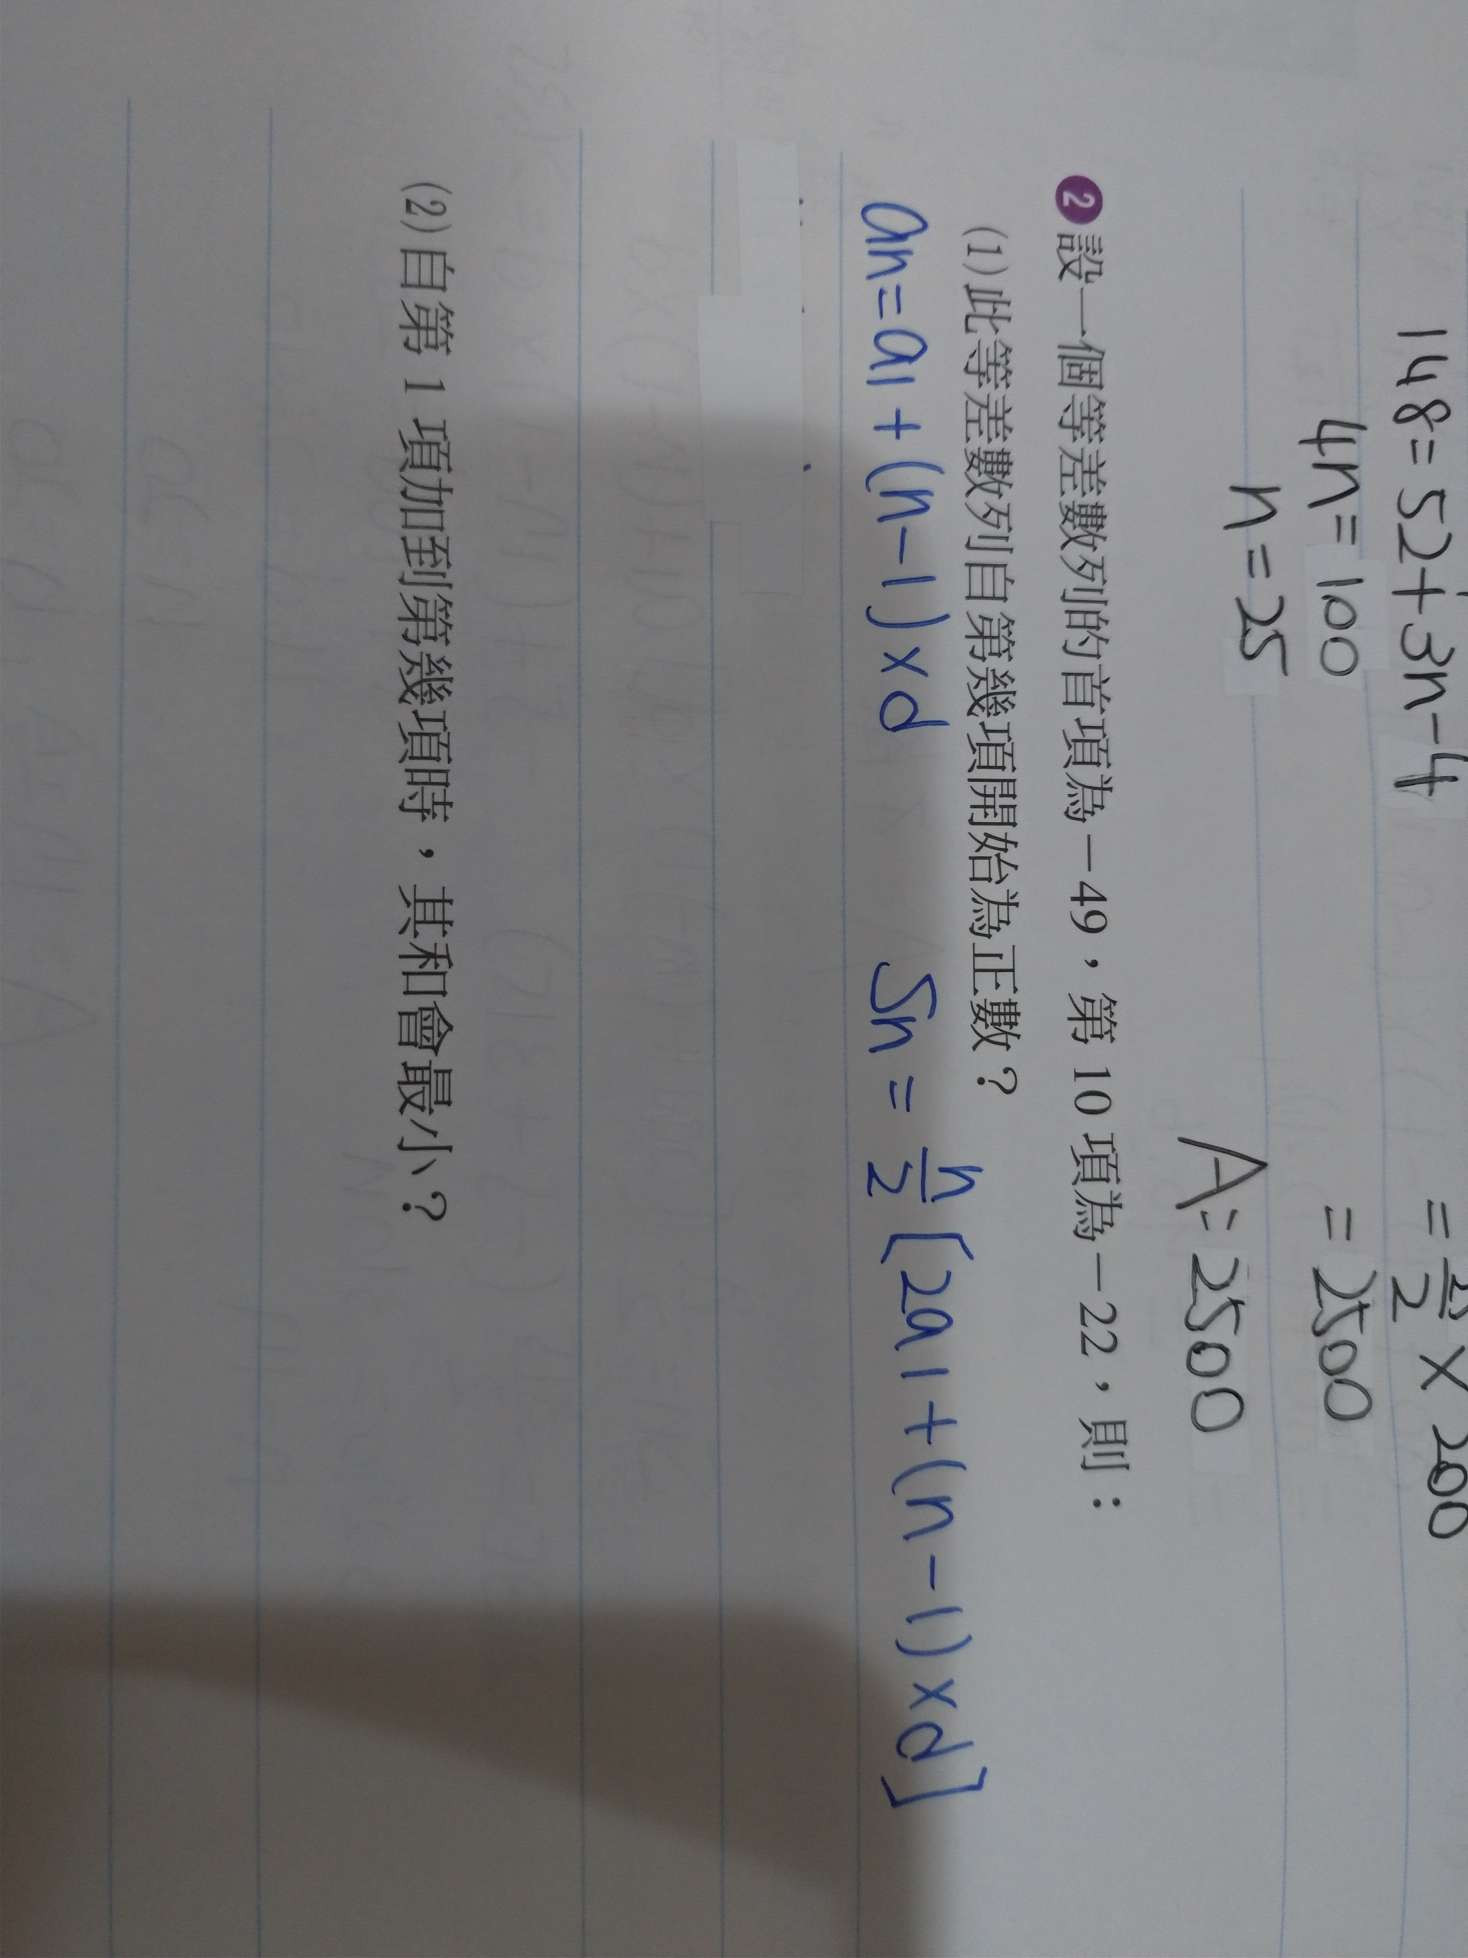 148 = 52 + 3n - 4
4n = 100
n = 25
× 200
= 2500
A = 2500
❷設一個等差數列的首項為－49，第 10 項為－22，則：
(1)此等差數列自第幾項開始為正數？
an = a1 + (n - 1) × d
Sn = n/2 [2a1 + (n - 1) × d]
(2)自第 1 項加到第幾項時，其和會最小？